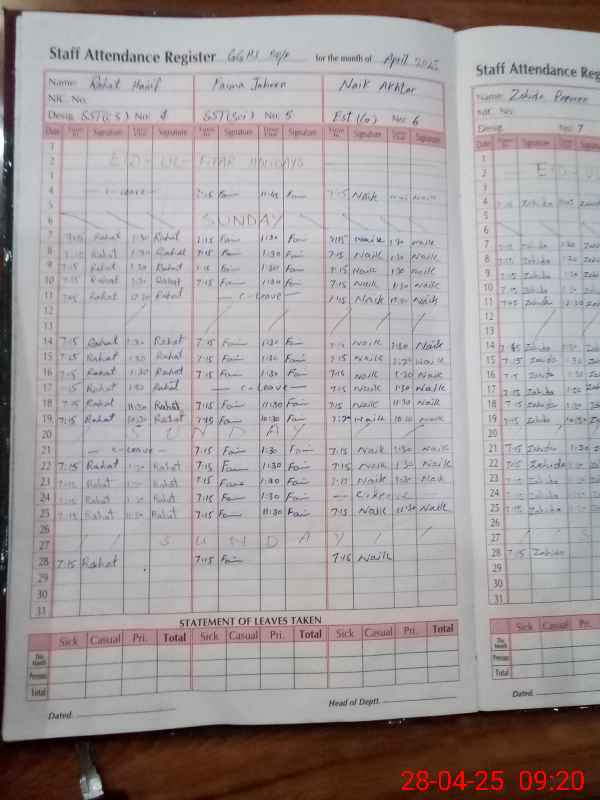 Staff Attendance Register GGHS for the month of April 2025
Name: Rahat Hanif Fauna Jabeen Naik Akhtar
NIC. No.
Desig. SST(CS) No: 4 SST(Sci) No: 5 Est(G) No: 6
Date Signature Signature Signature Signature Signature Signature
1
2 EID-UL-FITAR HOLIDAYS
3
4 c-leave 7:15 Fain 11:45 Fain 7:15 Naik Naik
5
6 SUNDAY
7 7:15 Rahat 1:30 Rahat 7:15 Fain 1:30 Fain 7:15 Naik 1:30 Naik
8 7:15 Rahat 1:30 Rahat 7:15 Fain 1:30 Fain 7:15 Naik 1:30 Naik
9 7:15 Rahat 1:30 Rahat 7:15 Fain 1:30 Fain 7:15 Naik 1:30 Naik
10 7:15 Rahat 1:30 Rahat 7:15 Fain 1:30 Fain 7:15 Naik 1:30 Naik
11 7:15 Rahat 12:30 Rahat c-leave Naik Naik
12
13
14 7:15 Rahat 1:30 Rahat 7:15 Fain 1:30 Fain 7:15 Naik 1:30 Naik
15 7:15 Rahat 1:30 Rahat 7:15 Fain 1:30 Fain 7:15 Naik Naik
16 7:15 Rahat 1:30 Rahat 7:15 Fain 1:30 Fain 7:15 Naik 1:30 Naik
17 7:15 Rahat 1:30 Rahat c-leave 7:15 Naik 1:30 Naik
18 7:15 Rahat 11:30 Rahat 7:15 Fain 11:30 Fain 7:15 Naik 11:30 Naik
19 7:15 Rahat 10:30 Rahat 7:15 Fain 10:30 Fain Naik 10:30 Naik
20 SUNDAY
21 c-leave 7:15 Fain 1:30 Fain 7:15 Naik 1:30 Naik
22 7:15 Rahat 1:30 Rahat 7:15 Fain 11:30 Fain 7:15 Naik 1:30 Naik
23 7:15 Rahat 1:30 Rahat 7:15 Fain 1:30 Fain Naik 1:30 Naik
24 7:15 Rahat 1:30 Rahat 7:15 Fain 1:30 Fain
25 7:15 Rahat 11:30 Rahat 7:15 Fain 11:30 Fain 7:15 Naik 11:30 Naik
26
27 SUNDAY
28 7:15 Rahat 7:15 Fain 7:15 Naik
29
30
31
STATEMENT OF LEAVES TAKEN
Sick Casual Pri. Total Sick Casual Pri. Total Sick Casual Pri. Total
This Month
Previous
Total
Dated. Head of Deptt.
Staff Attendance Reg
Name: Zahida Parveen
NIC No:
Desig. No: 7
Date Signature Signature
1
2 EID-U
3
4 7:15 Zahida Zahida
5
6
7 7:15 Zahida 1:30 Zahida
8 7:15 Zahida 1:30
9 7:15 Zahida 1:30
10 7:15 Zahida 1:30
11 7:15 Zahida 12:30
12
13
14 7:15 Zahida 1:30
15 7:15 Zahida 1:30
16 7:15 Zahida 1:30
17 7:15 Zahida 1:30
18 7:15 Zahida 11:30
19 7:15 Zahida 10:30
20
21 7:15 Zahida 1:30
22 7:15 Zahida 1:30
23 7:15 Zahida 1:30
24 7:15 Zahida
25 7:15 Zahida 11:30
26
27 S
28 7:15 Zahida
29
30
31
Sick Casual Pri.
This Month
Previous
Total
Dated.
28-04-25 09:20